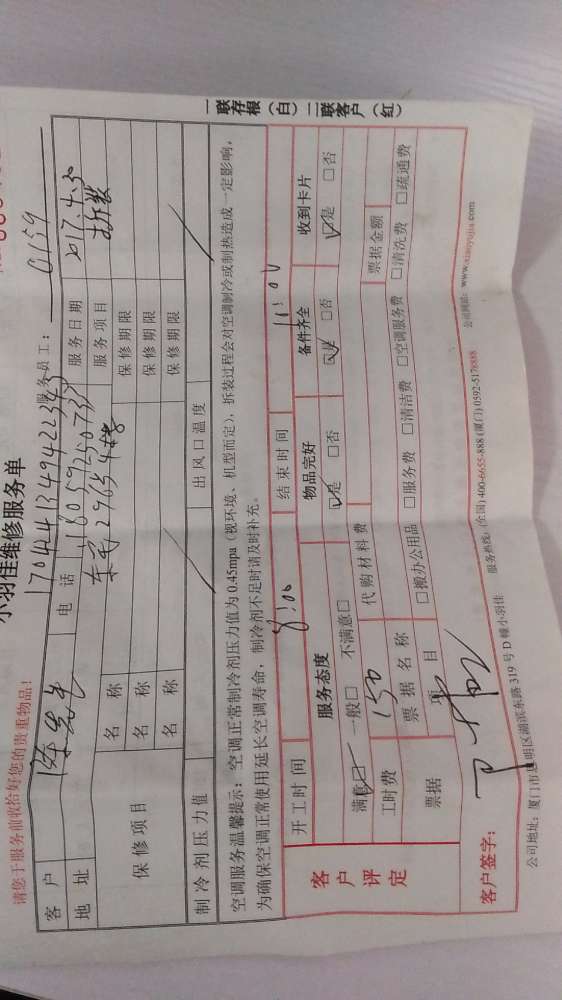 小羽佳维修服务单
请您于服务前收拾好您的贵重物品!
170424134942234
服务员工: 0159
客户 陈先生 电话 服务日期 2017.4.30
地址 服务项目 拆装
保修项目 名称 保修期限
名称 保修期限
名称 保修期限
制冷剂压力值 出风口温度
空调服务温馨提示: 空调正常制冷剂压力值为0.45mpa(视环境、机型而定), 拆装过程会对空调制冷或制热造成一定影响,
为确保空调正常使用延长空调寿命, 制冷剂不足时请及时补充。
开工时间 8:00 结束时间 11:00
客户评定
服务态度 物品完好 备件齐全 收到卡片
满意☑ 一般□ 不满意□ ☑是 □否 ☑是 □否 ☑是 □否
工时费 150 代购材料费
票据 票据名称 票据金额
项目 □搬办公用品 □服务费 □清洁费 □空调服务费 □清洗费 □疏通费
客户签字:
公司地址: 厦门市思明区湖滨东路319号D幢小羽佳 服务热线: (全国)400-6655-888 (厦门)0592-5178888 公司网站: www.xiaoyujia.com
一联存根(白) 二联客户(红)